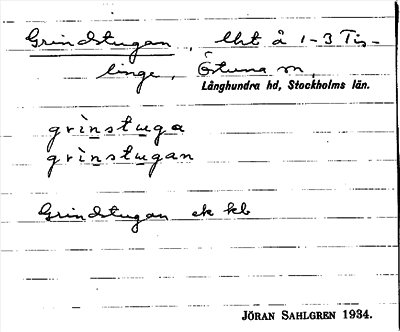 Grindstugan, lht å 1-3 Tis-
linge, Östuna sn,
Långhundra hd, Stockholms län.
grinstuga
grinstugan
Grindstugan ek kb
JÖRAN SAHLGREN 1934.